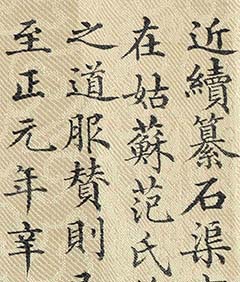 近續纂石渠
在姑蘇范氏
之道服贊則
至正元年辛